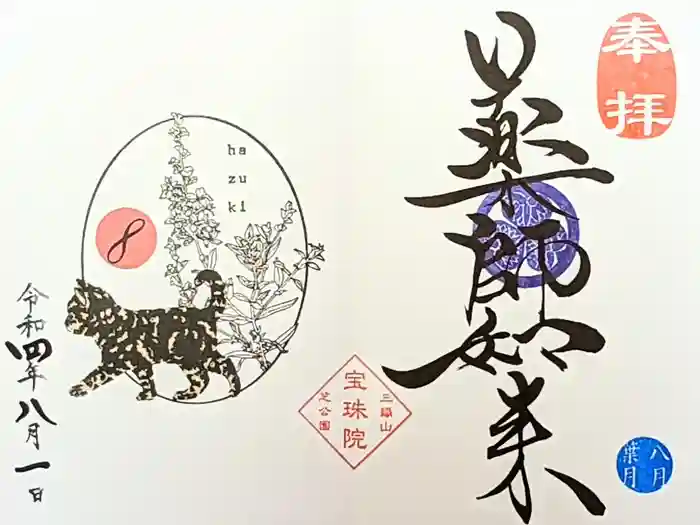 奉拝
薬師如来
八月
葉月
三縁山
宝珠院
芝公園
ha
zu
ki
8
令和四年八月一日